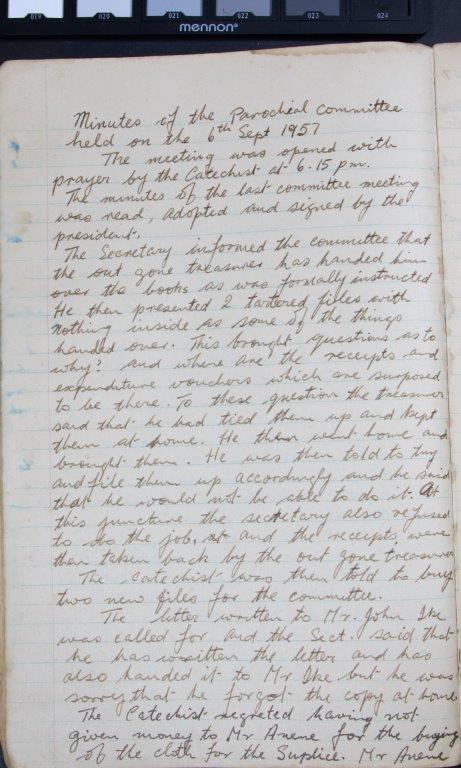 019 020 021 022 023 024
mennon
Minutes of the Parocheal committee
held on the 6th Sept 1957
The meeting was opened with
prayer by the Catechist at 6.15 p.m.
The minutes of the last committee meeting
was read, adopted and signed by the
president.
The Secretary informed the committee that
the out gone treasurer has handed him
over the books as was formally instructed
He then presented 2 tattered files with
nothing inside as some of the things
handed over. This brought questions as to
why? and where are the receipts and
expenditure vouchers which are surposed
to be there. To these question the treasurer
said that he had tied them up and kept
them at home. He then went home and
brought them. He was then told to try
and file them up accordingly and he said
that he would not be able to do it. At
this juncture the secretary also refused
to do the job, and the receipts were
then taken back by the out gone treasurer
The catechist was then told to buy
two new files for the committee.
The letter written to Mr. John Ike
was called for and the Sect. said that
he has written the letter and has
also handed it to Mr Ike but he was
sorry that he forgot the copy at home
The Catechist regreted having not
given money to Mr Anene for the buying
of the cloth for the Suplice. Mr Anene